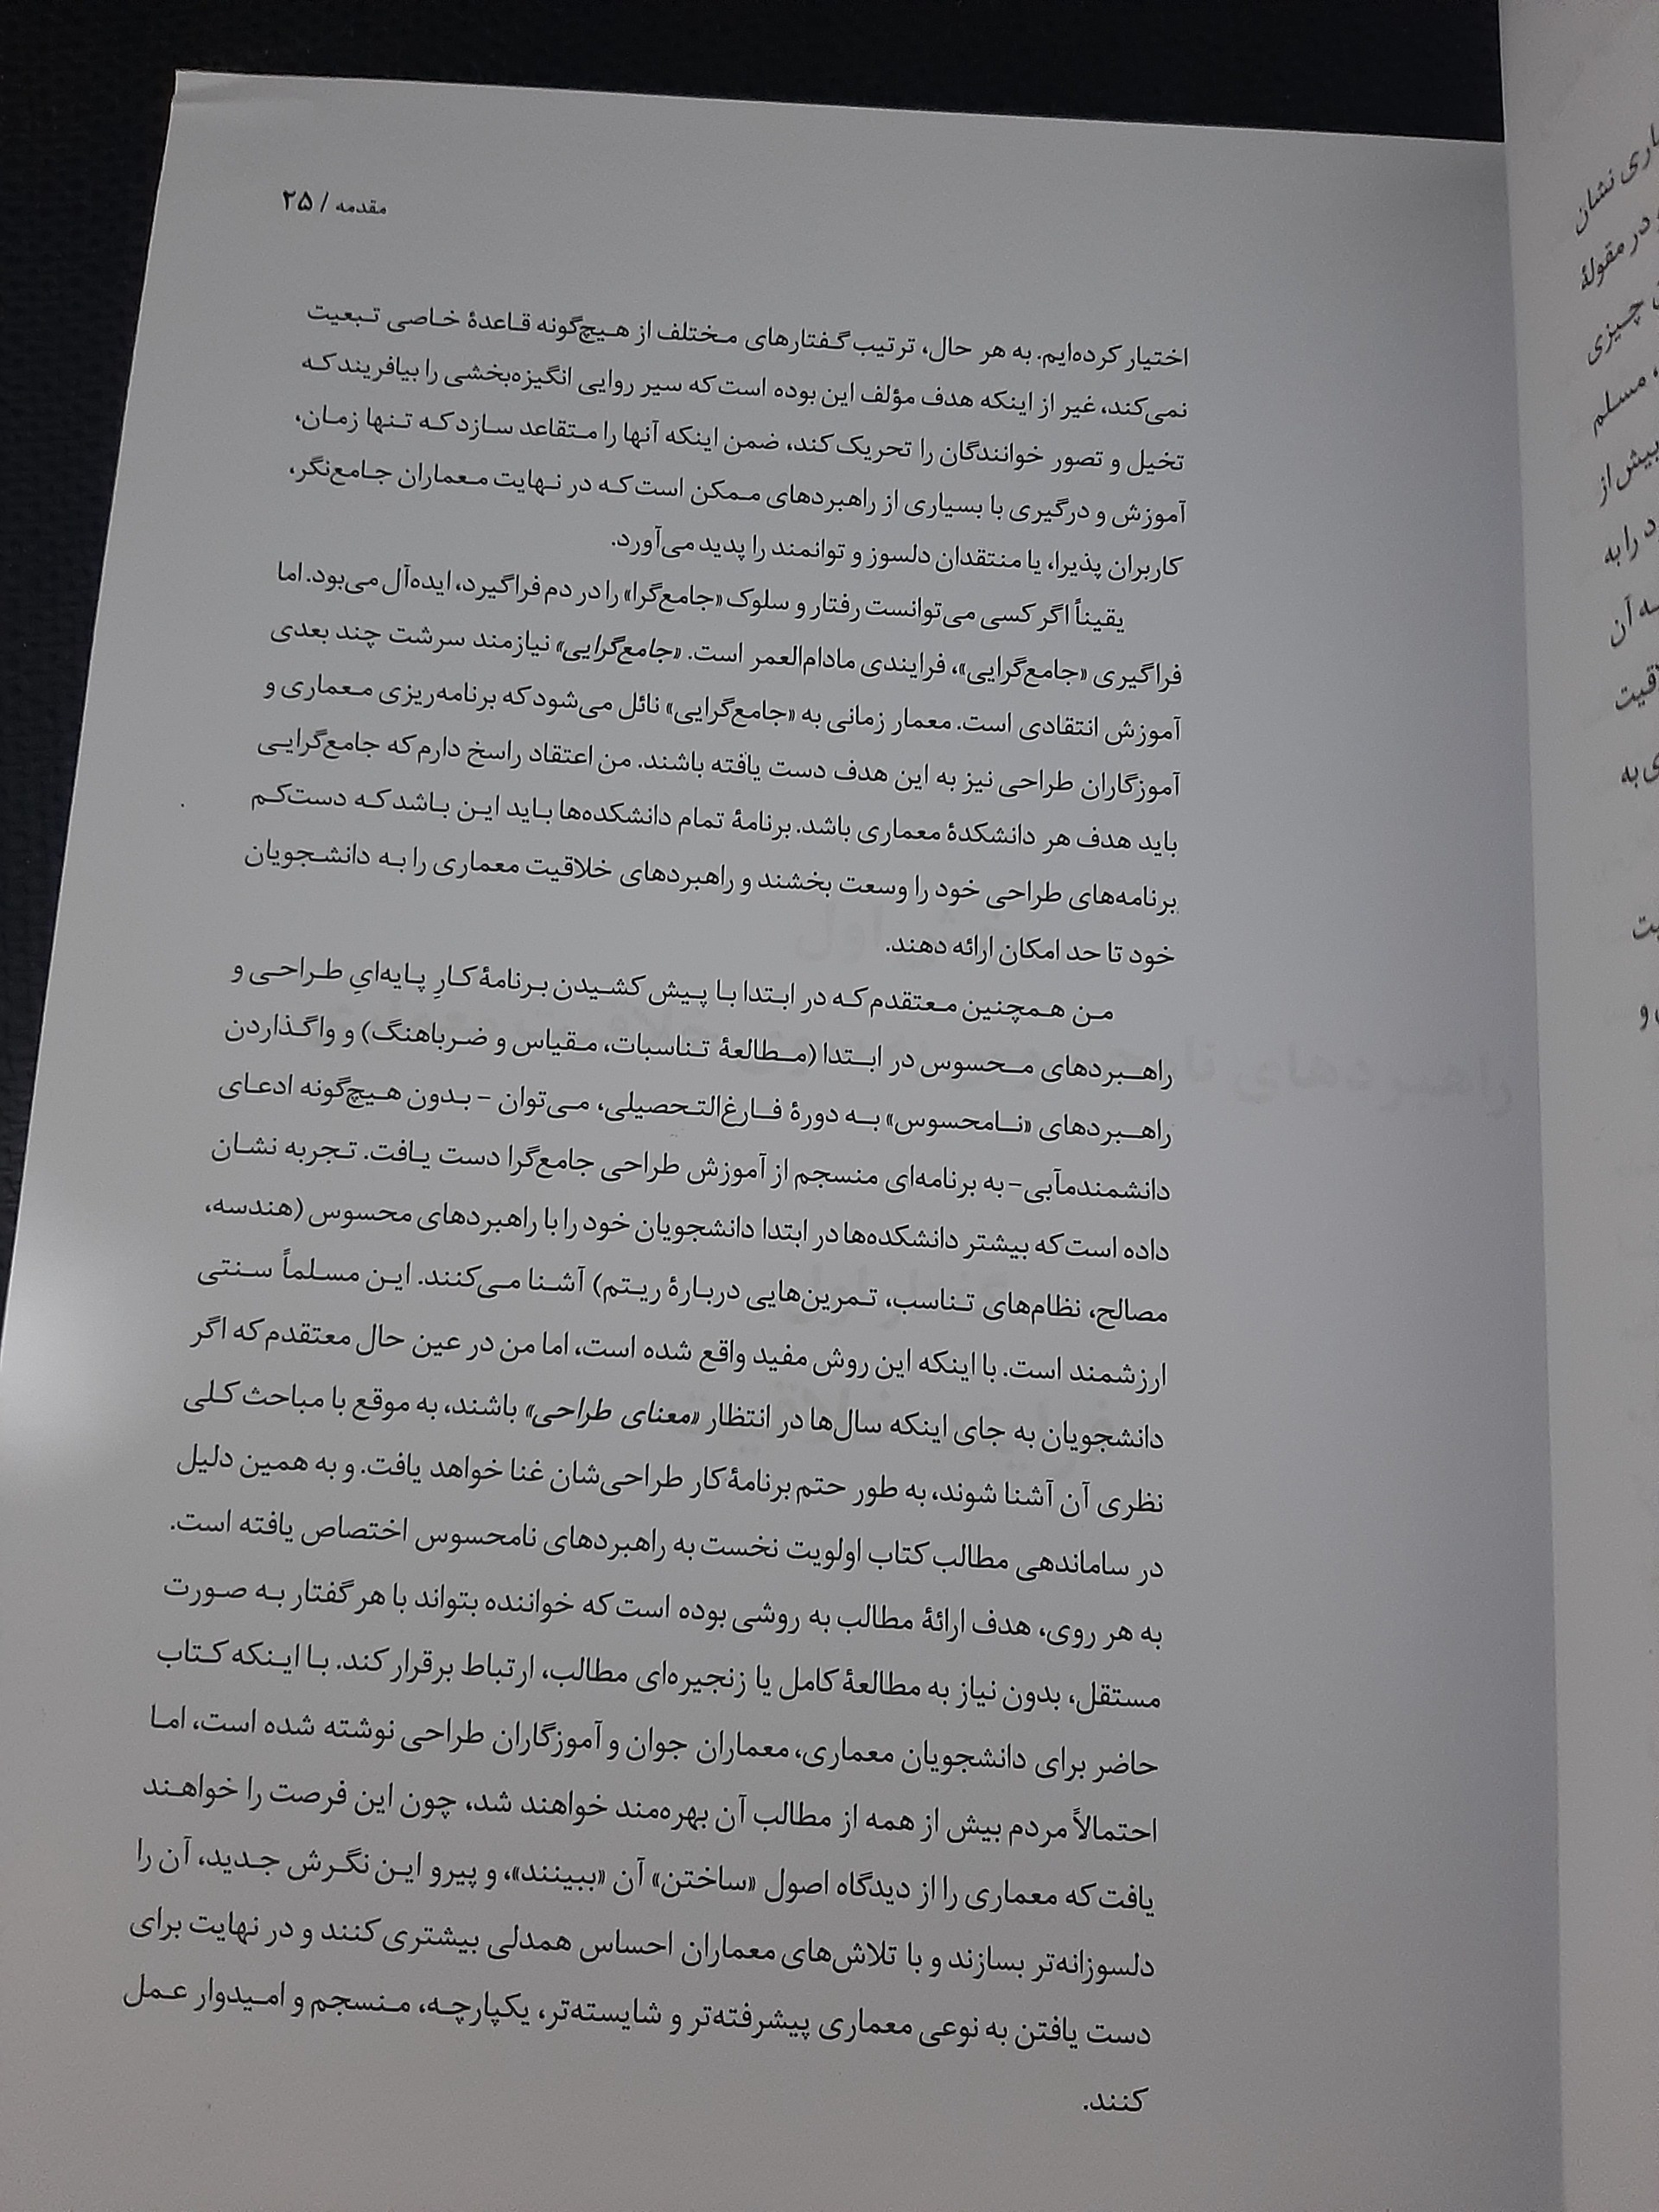 مقدمه / ۲۵
اختیار کرده‌ایم. به هر حال، ترتیب گفتارهای مختلف از هیچ‌گونه قاعدهٔ خاصی تبعیت
نمی‌کند، غیر از اینکه هدف مؤلف این بوده است که سیر روایی انگیزه‌بخشی را بیافریند که
تخیل و تصور خوانندگان را تحریک کند، ضمن اینکه آنها را متقاعد سازد که تنها زمان،
آموزش و درگیری با بسیاری از راهبردهای ممکن است که در نهایت معماران جامع‌نگر،
کاربران پذیرا، یا منتقدان دلسوز و توانمند را پدید می‌آورد.
یقیناً اگر کسی می‌توانست رفتار و سلوک «جامع‌گرا» را در دم فراگیرد، ایده‌آل می‌بود. اما
فراگیری «جامع‌گرایی»، فرایندی مادام‌العمر است. «جامع‌گرایی» نیازمند سرشت چند بعدی
آموزش انتقادی است. معمار زمانی به «جامع‌گرایی» نائل می‌شود که برنامه‌ریزی معماری و
آموزگاران طراحی نیز به این هدف دست یافته باشند. من اعتقاد راسخ دارم که جامع‌گرایی
باید هدف هر دانشکدهٔ معماری باشد. برنامهٔ تمام دانشکده‌ها باید این باشد که دست‌کم
برنامه‌های طراحی خود را وسعت بخشند و راهبردهای خلاقیت معماری را به دانشجویان
خود تا حد امکان ارائه دهند.
من همچنین معتقدم که در ابتدا با پیش کشیدن برنامهٔ کارِ پایه‌ایِ طراحی و
راهبردهای محسوس در ابتدا (مطالعهٔ تناسبات، مقیاس و ضرباهنگ) و واگذاردن
راهبردهای «نامحسوس» به دورهٔ فارغ‌التحصیلی، می‌توان - بدون هیچ‌گونه ادعای
دانشمندمآبی- به برنامه‌ای منسجم از آموزش طراحی جامع‌گرا دست یافت. تجربه نشان
داده است که بیشتر دانشکده‌ها در ابتدا دانشجویان خود را با راهبردهای محسوس (هندسه،
مصالح، نظام‌های تناسب، تمرین‌هایی دربارهٔ ریتم) آشنا می‌کنند. این مسلماً سنتی
ارزشمند است. با اینکه این روش مفید واقع شده است، اما من در عین حال معتقدم که اگر
دانشجویان به جای اینکه سال‌ها در انتظار «معنای طراحی» باشند، به موقع با مباحث کلی
نظری آن آشنا شوند، به طور حتم برنامهٔ کار طراحی‌شان غنا خواهد یافت. و به همین دلیل
در ساماندهی مطالب کتاب اولویت نخست به راهبردهای نامحسوس اختصاص یافته است.
به هر روی، هدف ارائهٔ مطالب به روشی بوده است که خواننده بتواند با هر گفتار به صورت
مستقل، بدون نیاز به مطالعهٔ کامل یا زنجیره‌ای مطالب، ارتباط برقرار کند. با اینکه کتاب
حاضر برای دانشجویان معماری، معماران جوان و آموزگاران طراحی نوشته شده است، اما
احتمالاً مردم بیش از همه از مطالب آن بهره‌مند خواهند شد، چون این فرصت را خواهند
یافت که معماری را از دیدگاه اصول «ساختن» آن «ببینند»، و پیرو این نگرش جدید، آن را
دلسوزانه‌تر بسازند و با تلاش‌های معماران احساس همدلی بیشتری کنند و در نهایت برای
دست یافتن به نوعی معماری پیشرفته‌تر و شایسته‌تر، یکپارچه، منسجم و امیدوار عمل
کنند.
نشان
در مقولهٔ
چیزی
مسلم
بیش از
را به
آن